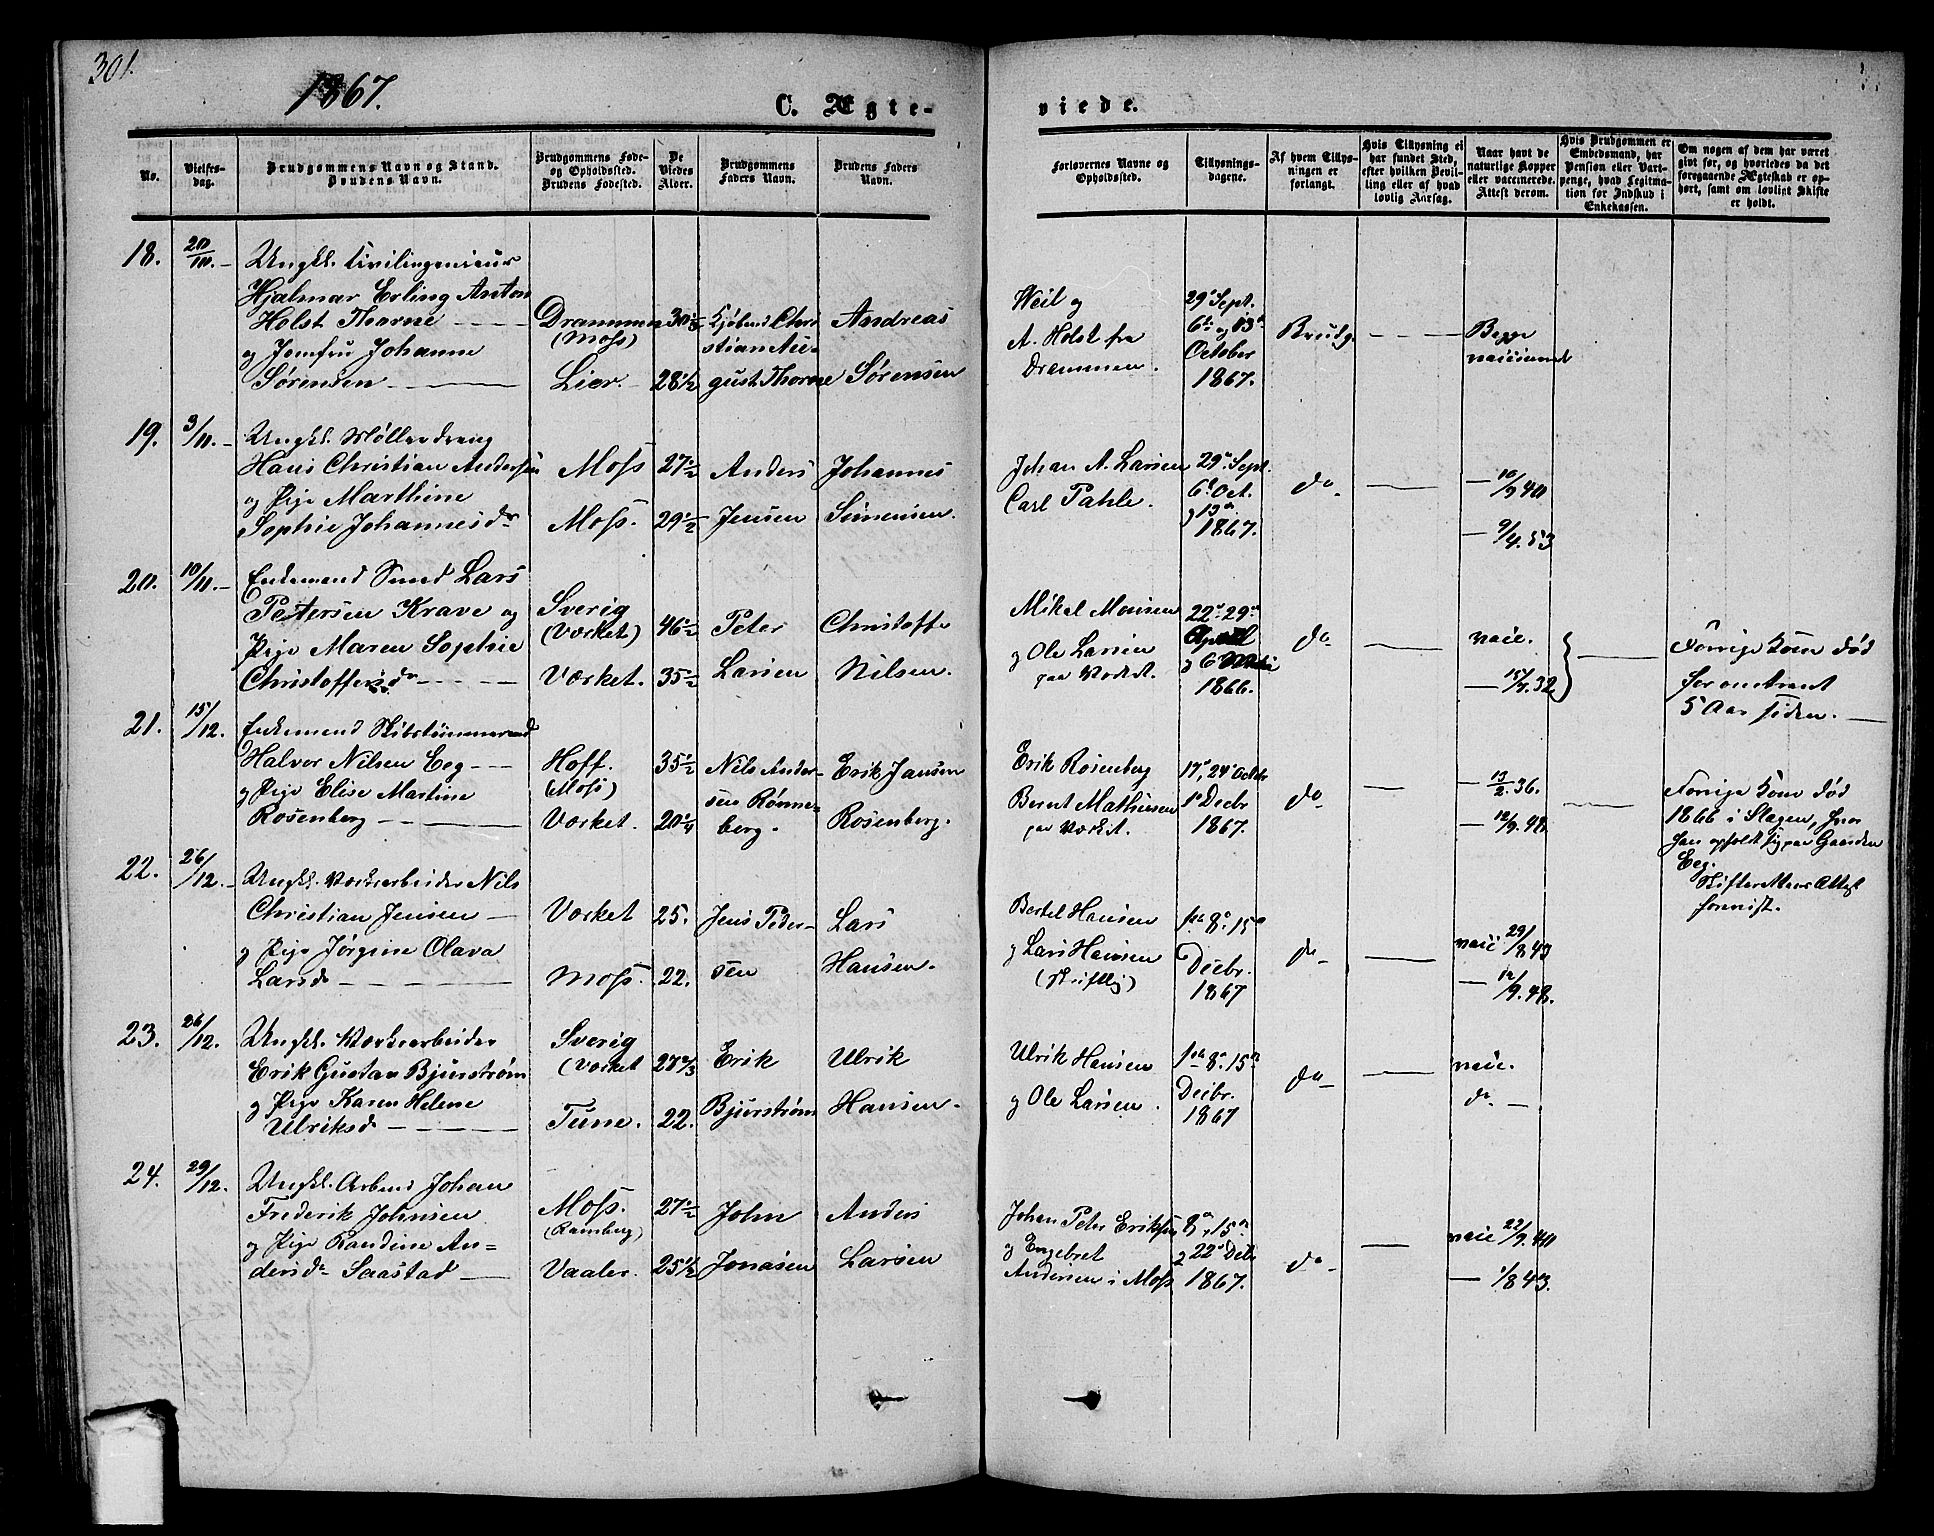 301.
1867.
C. Ægte-
viede.
No.
Vielses-
dag.
Brudgommens Navn og Stand.
Brudens Navn.
Brudgommens Føde-
og Opholdssted.
Brudens Fødested.
De
Viedes
Alder.
Brudgommens
Faders Navn.
Brudens Faders
Navn.
Forlovernes Navne og
Opholdssted.
Tillysnings-
dagene.
Af hvem Tillys-
ningen er
forlangt.
Hvis Tillysning ei
har fundet Sted,
efter hvilken Bevil-
ling eller af hvad
lovlig Aarsag.
Naar havt de
naturlige Kopper
eller vaccinerede.
Attest derom.
Hvis Brudgommen er
Embedsmand, har
Pension eller Vart-
penge, hvad Legitima-
tion for Indskud i
Enkekassen.
Om nogen af dem har været
gift før, og hvorledes da det
foregaaende Ægteskab er op-
hørt, samt om lovligt Skifte
er holdt.
18. 20/10.
Ungkl. Civilingenieur
Hjalmar Erling Anton
Holst Thorne
og Jomfru Johanne
Sørensen
Drammen
(Moss)
Lier.
30
28 1/2
Kjøbmd Chri
stian Au-
gust Thorne
Andreas
Sørensen
Weil og
A. Holst fra
Drammen.
29' Sept.
6te og 13'
October
1867.
Brudg.
Begge
19. 3/11.
Ungkl. Møllerdreng
Hans Christian Andersen
og Pige Marthine
Sophie Johannesdr
Moss
Moss.
27 1/2
29 1/2
Anders
Jensen
Johannes
Simensen.
Johan A. Larsen
Carl Pahle.
29' Sept.
6' Oct.
og 13'
1867.
do
10/9 40
9/4.53
20. 10/11.
Enkemand Smed Lars
Pettersen Krave og
Pige Maren Sophie
Christoffersdr
Sverig
(Værket)
Værket.
46 1/2
35 1/2
Peter
Larsen
Christoffer
Nilsen.
Mikal Monsen
og Ole Larsen
paa Værket.
22' 29'
April
og 6'
1866.
do
vacc.
15/9.32
Forrige Kone død
for omtrent
5 Aar siden.
21. 15/12.
Enkemand Skibstømmermand
Halvor Nilsen Eeg
og Pige Elise Martine
Rosenberg
Hoff.
(Moss)
Værket.
35 1/2
20 1/4
Nils Ander-
sen Rønne-
berg.
Erik Jansen
Rosenberg.
Erik Rosenberg
Bernt Mathiesen
paa Værket.
17', 24'
1' Decbr
1867.
do
13/2.36.
12/9.48
Forrige Kone død
1866 i Slagen, hvor
han opholdt sig paa Gaarden
Eeg.
Attest
forevist.
22. 26/12.
Ungkl. Værksarbeider Nils
Christian Jensen
og Pige Jørgine Olava
Larsd
Værket
Moss.
25.
22.
Jens Peder-
sen
Lars
Hansen.
Bertel Hansen
og Lars Hansen
(Skriftlig)
1ste 8' 15'
Decbr.
1867
do
vacc 29/8 43
12/9.48.
23. 26/12.
Ungkl. Værksarbeider
Erik Gustav Bjurstrøm
og Pige Karen Helene
Ulriksd
Sverig
(Værket
Tune.
22.
Erik
Bjurstrøm
Ulrik
Hansen.
Ulrik Hansen
og Ole Larsen.
1ste 8' 15'
Decbr.
1867
do
vacc.
do
24. 29/12.
Ungkl. Arbmd Johan
Frederik Johnsen
og Pige Randine An=
dersd Saastad
Moss.
(Ramberg)
Vaaler.
27 1/2
25 1/2
John
Jonasen
Anders
Larsen
Johan Peter Eriksen
og Engebret
Andersen i Moss
8', 15'
og 22' Decbr
1867.
do
vacc 22/9.40
1/8 43.